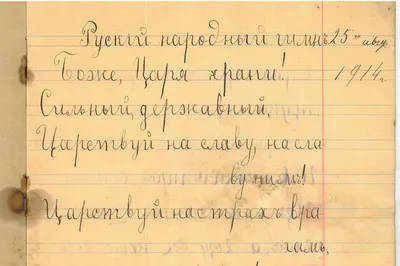 Рускій народный гимнъ 25го авгу.
Боже, Царя храни! 1914г.
Сильный, державный,
Царствуй на славу, на сла
ву намъ!
Царствуй на страхъ вра
гамъ,